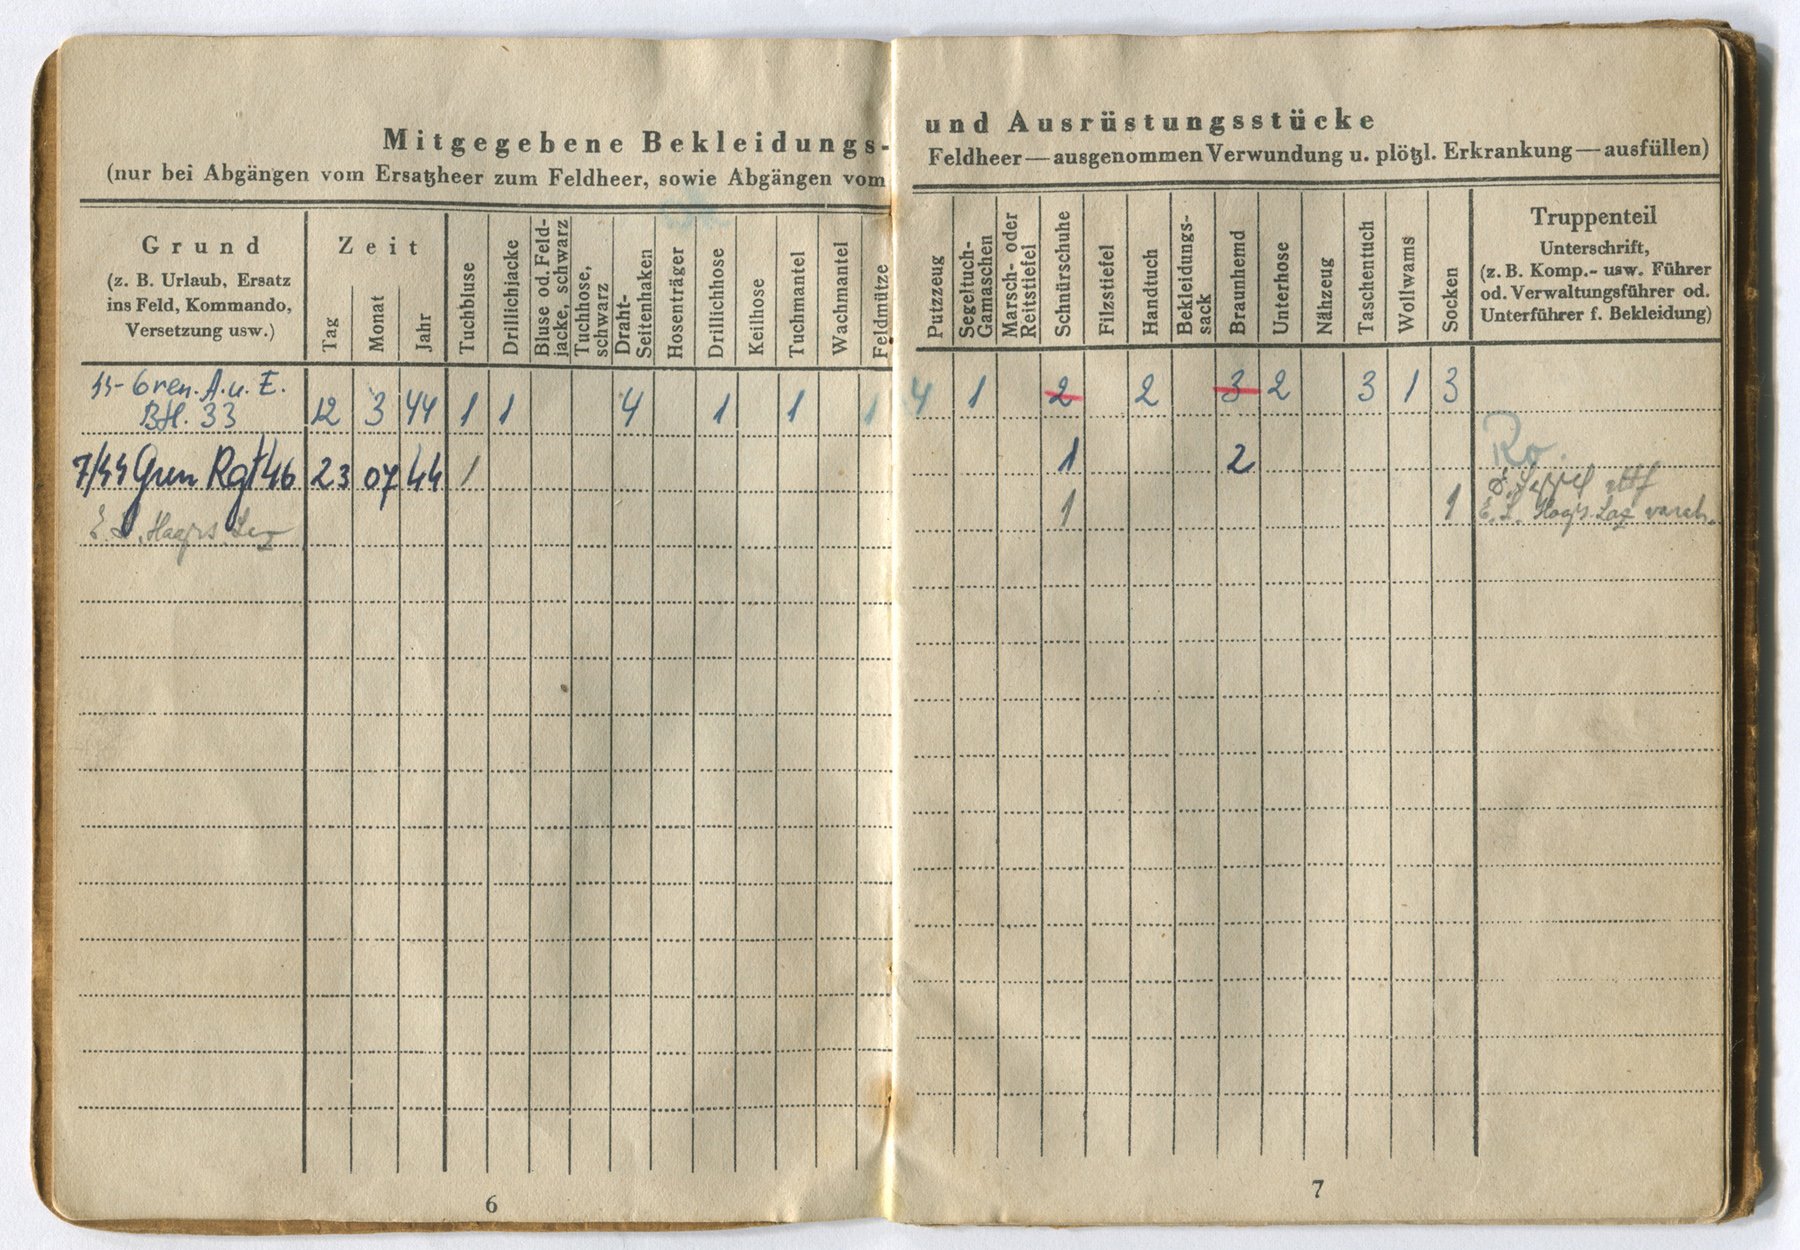 Mitgegebene Bekleidungs-
(nur bei Abgängen vom Ersatzheer zum Feldheer, sowie Abgängen vom
Grund
(z. B. Urlaub, Ersatz
ins Feld, Kommando,
Versetzung usw.)
Zeit
Tag
Monat
Jahr
Tuchbluse
Drillichjacke
Bluse od. Feld-
jacke, schwarz
Tuchhose,
schwarz
Draht-
Seitenhaken
Hosenträger
Drillichhose
Keilhose
Tuchmantel
Wachmantel
Feldmütze
SS-Gren. A. u. E.
Btl. 33 12 3 44 1 1 4 1 1 1
7/SS Gren Rgt 46 23 07 44 1
E. L.
6
und Ausrüstungsstücke
Feldheer — ausgenommen Verwundung u. plötzl. Erkrankung — ausfüllen)
Putzzeug
Segeltuch-
Gamaschen
Marsch- oder
Reitstiefel
Schnürschuhe
Filzstiefel
Handtuch
Bekleidungs-
sack
Braunhemd
Unterhose
Nähzeug
Taschentuch
Wollwams
Socken
Truppenteil
Unterschrift,
(z. B. Komp.- usw. Führer
od. Verwaltungsführer od.
Unterführer f. Bekleidung)
4 1 2 2 3 2 3 1 3
1 2 Ro.
1 1 E. L.
7